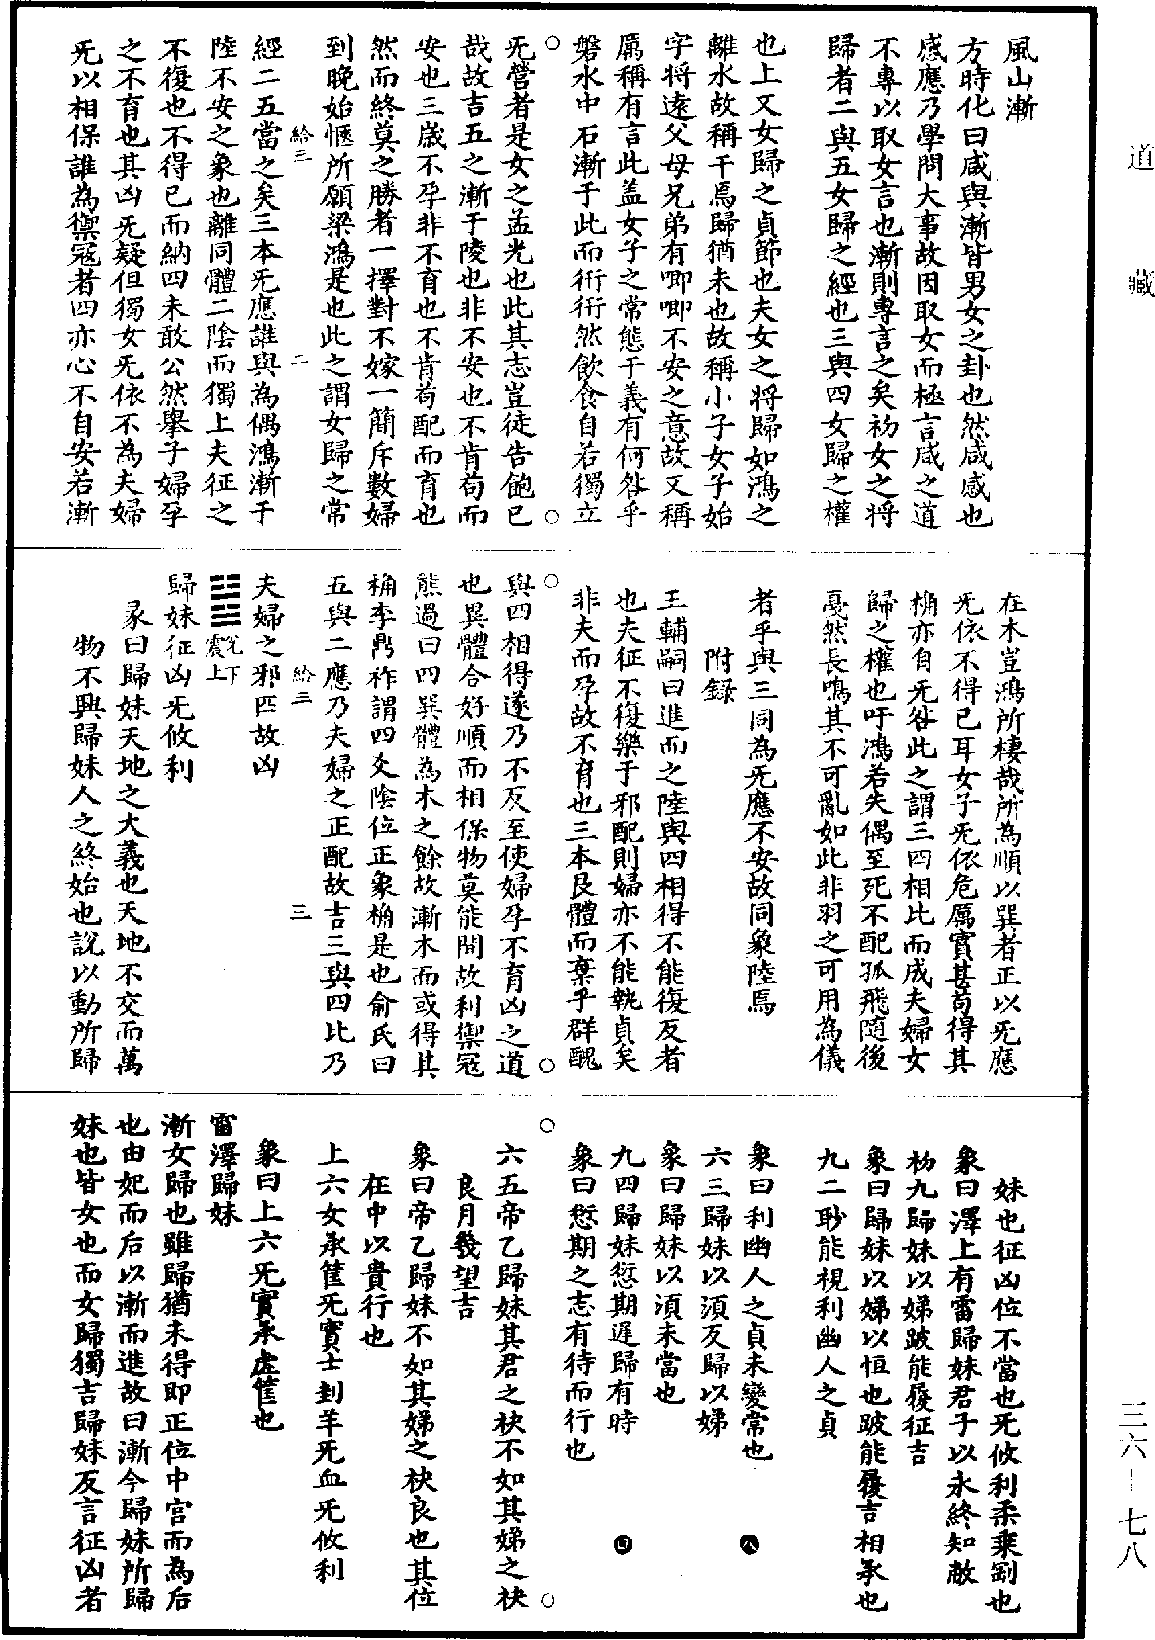 道藏
三六—七八
風山漸
方時化曰咸與漸皆男女之卦也然咸感也
感應乃學問大事故因取女而極言咸之道
不專以取女言也漸則專言之矣初女之將
歸者二與五女歸之經也三與四女歸之權
也上又女歸之貞節也夫女之將歸如鴻之
離水故稱干焉歸猶未也故稱小子女子始
字將遠父母兄弟有唧唧不安之意故又稱
厲稱有言此盖女子之常態于義有何咎乎
磐水中石漸于此而衎衎然飲食自若獨立
旡營者是女之孟光也此其志豈徒告飽已
哉故吉五之漸于陵也非不安也不肯苟而
安也三歲不孕非不育也不肯苟配而育也
然而終莫之勝者一擇對不嫁一簡斥數婦
到晚始愜所願梁鴻是也此之謂女歸之常
給三 二
經二五當之矣三本旡應誰與為偶鴻漸于
陸不安之象也離同體二陰而獨上夫征之
不復也不得已而納四未敢公然舉子婦孕
之不育也其凶旡疑但獨女旡依不為夫婦
旡以相保誰為禦寇者四亦心不自安若漸
在木豈鴻所棲哉所為順以巽者正以旡應
旡依不得已耳女子旡依危厲實甚苟得其
桷亦自旡咎此之謂三四相比而成夫婦女
歸之權也吁鴻若失偶至死不配孤飛隨後
戞然長鳴其不可亂如此非羽之可用為儀
者乎與三同為旡應不安故同象陸焉
附錄
王輔嗣曰進而之陸與四相得不能復反者
也夫征不復樂于邪配則婦亦不能執貞矣
非夫而孕故不育也三本艮體而棄乎群醜
與四相得遂乃不反至使婦孕不育凶之道
也異體合好順而相保物莫能間故利禦寇
熊過曰四巽體為木之餘故漸木而或得其
桷李鼎祚謂四爻陰位正象桷是也俞氏曰
五與二應乃夫婦之正配故吉三與四比乃
給三 三
夫婦之邪匹故凶
䷵兌下震上
歸妹征凶旡攸利
彖曰歸妹天地之大義也天地不交而萬
物不興歸妹人之終始也說以動所歸
妹也征凶位不當也旡攸利柔乗剛也
象曰澤上有雷歸妹君子以永終知敝
初九歸妹以娣跛能履征吉
象曰歸妹以娣以恒也跛能履吉相承也
九二眇能視利幽人之貞
象曰利幽人之貞未變常也
六三歸妹以須反歸以娣
象曰歸妹以須未當也
九四歸妹愆期遲歸有時
象曰愆期之志有待而行也
六五帝乙歸妹其君之袂不如其娣之袂
良月幾望吉
象曰帝乙歸妹不如其娣之袂良也其位
在中以貴行也
上六女承筐旡實士刲羊旡血旡攸利
象曰上六旡實承虛筐也
雷澤歸妹
漸女歸也雖歸猶未得即正位中宮而為后
也由妃而后以漸而進故曰漸今歸妹所歸
妹也皆女也而女歸獨吉歸妹反言征凶者